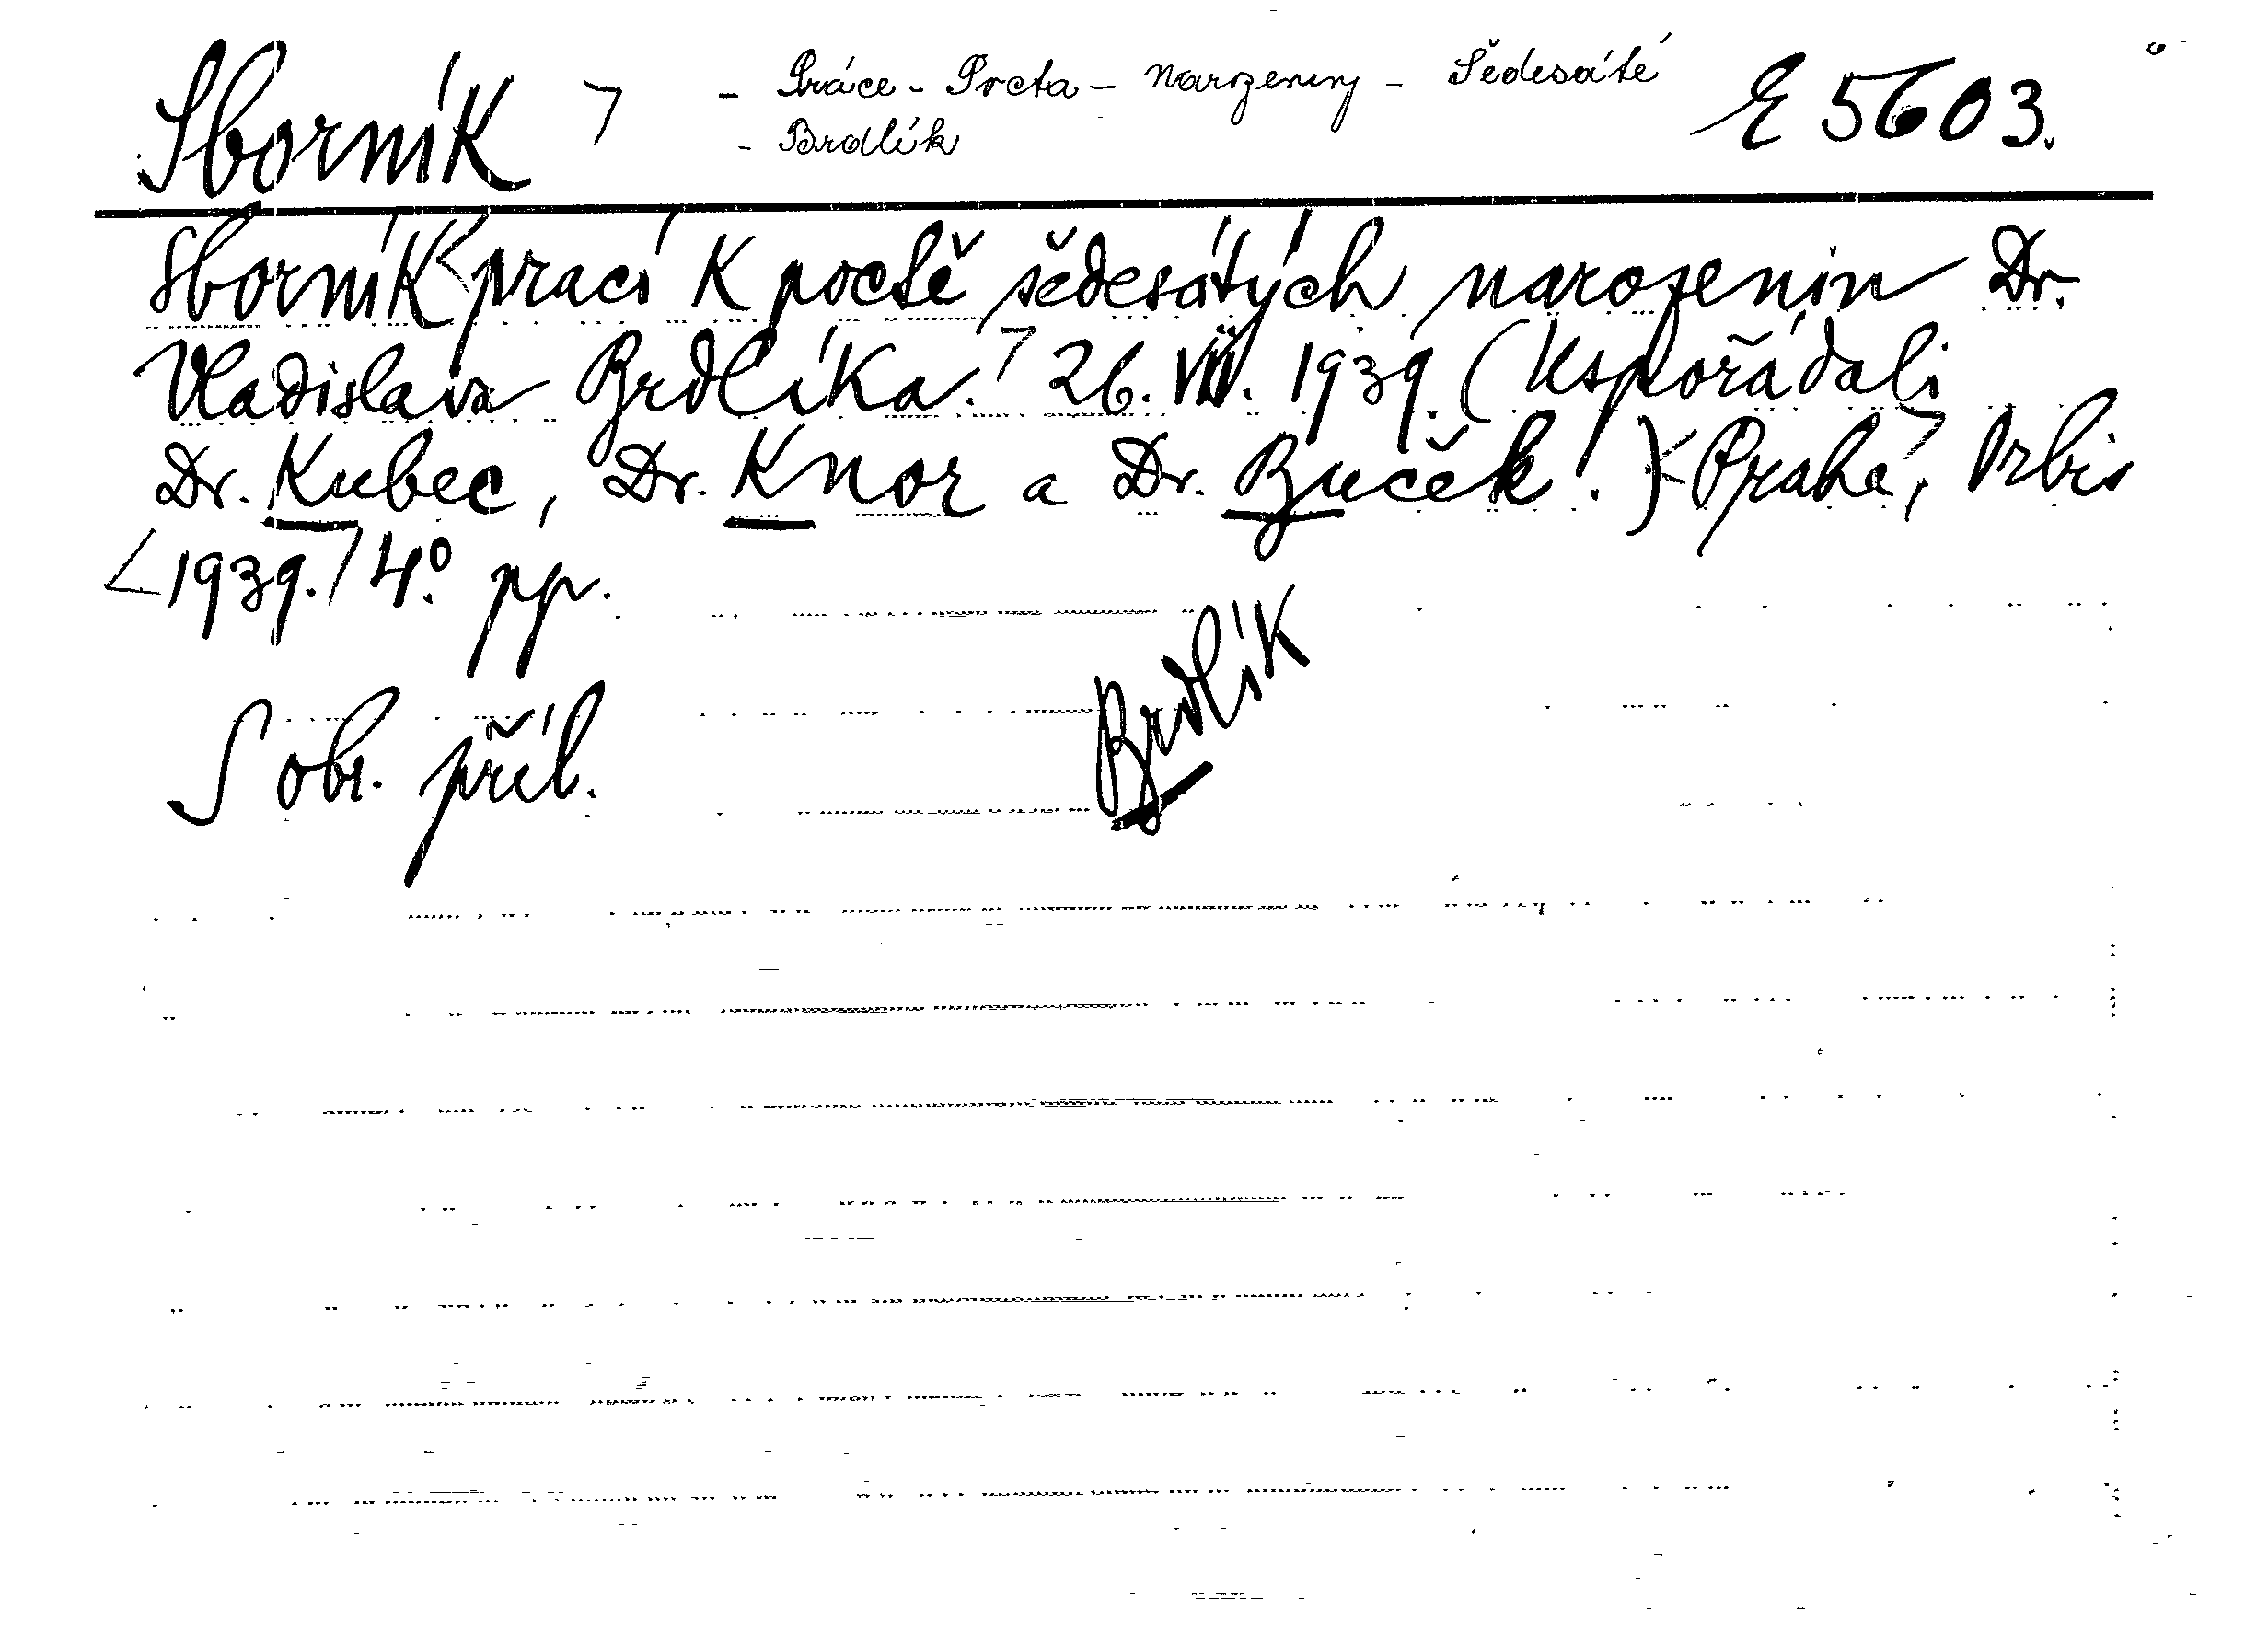 Sborník - Práce - Pocta - Narozeniny - Šedesáté E 5603.
- Brdlík
Sborník prací k poctě šedesátých narozenin Dr.
Vladislava Brdlíka. 26. VII. 1939. (Uspořádali
Dr. Kubec, Dr. Knor a Dr. Buček.) Praha, Orbis
1939. 4.º pp.
S obr. příl.
Brdlík